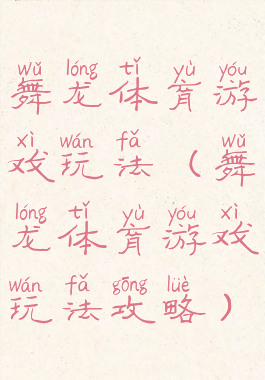 wǔ lóng tǐ yù yóu
舞龙体育游
xì wán fǎ wǔ
戏玩法（舞
lóng tǐ yù yóu xì
龙体育游戏
wán fǎ gōng lüè
玩法攻略）